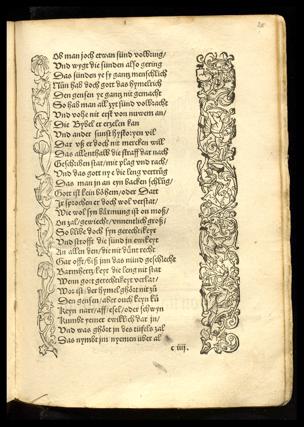 Ob man joch etwan sünd volbring/
Vnd wygt die sünden also gering
Das sünden ye sy gantz menschlich
Nün hab doch gott das hymelrich
Den gensen ye gantz nit gemacht
So hab man all zyt sünd volbracht
Vnd vohe nit erst von nuwem an/
Die Bybel er erzelen kan
Vnd ander sunst hysto:yen vil
Dar vß er doch nit mercken will
Das allenthalb die straff dar nach
Geschriben stat/mit plag vnd rach/
Vnd das gott ny e die leng vertrüg
Das man jn an eyn backen schlüg/
Gott ist keīn böhem/oder Datt
Je sprochen er doch wol verstat/
Wie wol syn bärmung ist on moß/
On zal/gewicht/vnentlich groß/
So blibt doch syn gerechtikeyt
Vnd strofft die sünd jn ewikeyt
An allen den/die nit dünt recht
Gar offt/biß jnn das nünd geschlecht
Barmhertzikeyt die leng nit stat
Wenn gott gerechtikeyt verlat/
Wor ist/der hymel ghört nit zü
Den gensen/aber ouch keyn kü
Keyn narr/aff/esel/oder schwyn
Kumbt yemer ewiklich dar jn/
Vnd was ghört jn des tüfels zal
Das nymbt jm nyemen über al
c iiij.